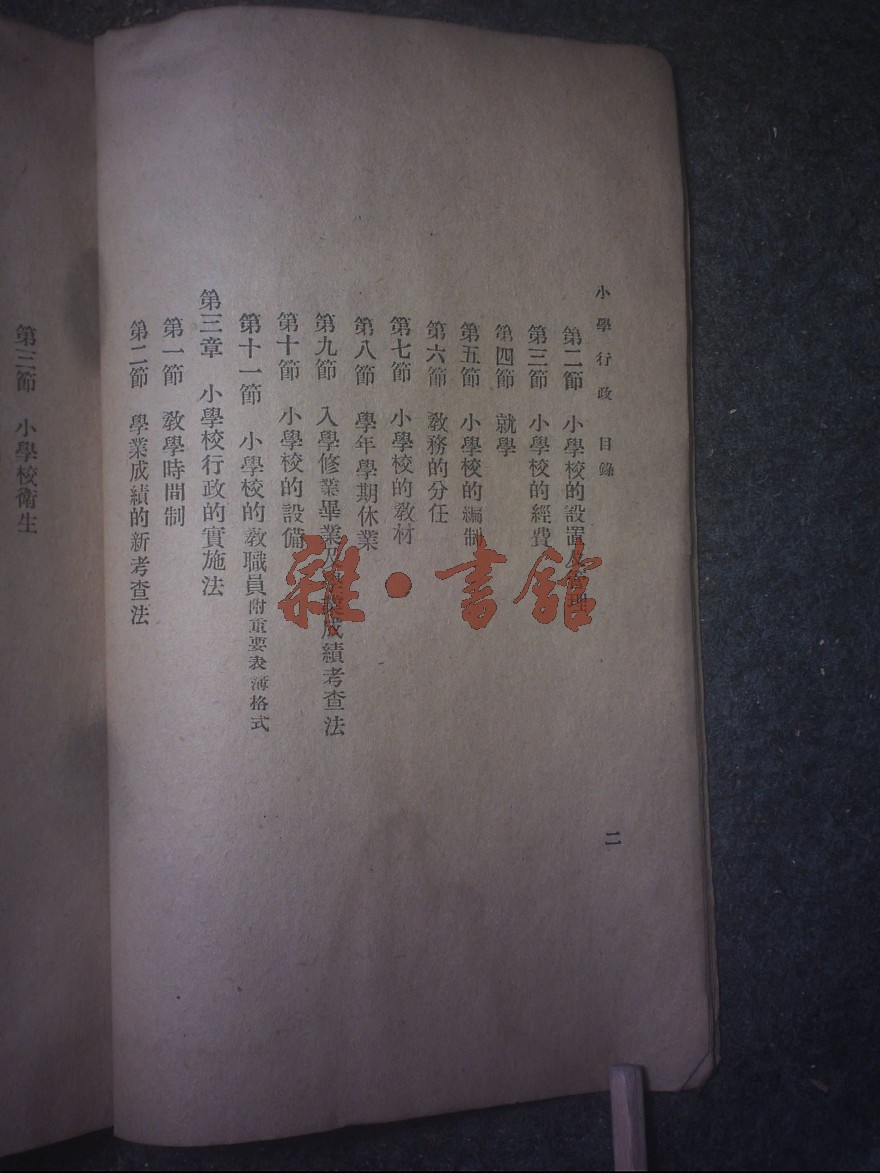 小學行政 目錄
二
第二節 小學校的設置及管理
第三節 小學校的經費
第四節 就學
第五節 小學校的編制
第六節 敎務的分任
第七節 小學校的敎材
第八節 學年學期休業
第九節 入學修業畢業及學業成績考查法
第十節 小學校的設備
第十一節 小學校的敎職員附重要表簿格式
第三章 小學校行政的實施法
第一節 敎學時間制
第二節 學業成績的新考查法
第三節 小學校衛生
雜·書館